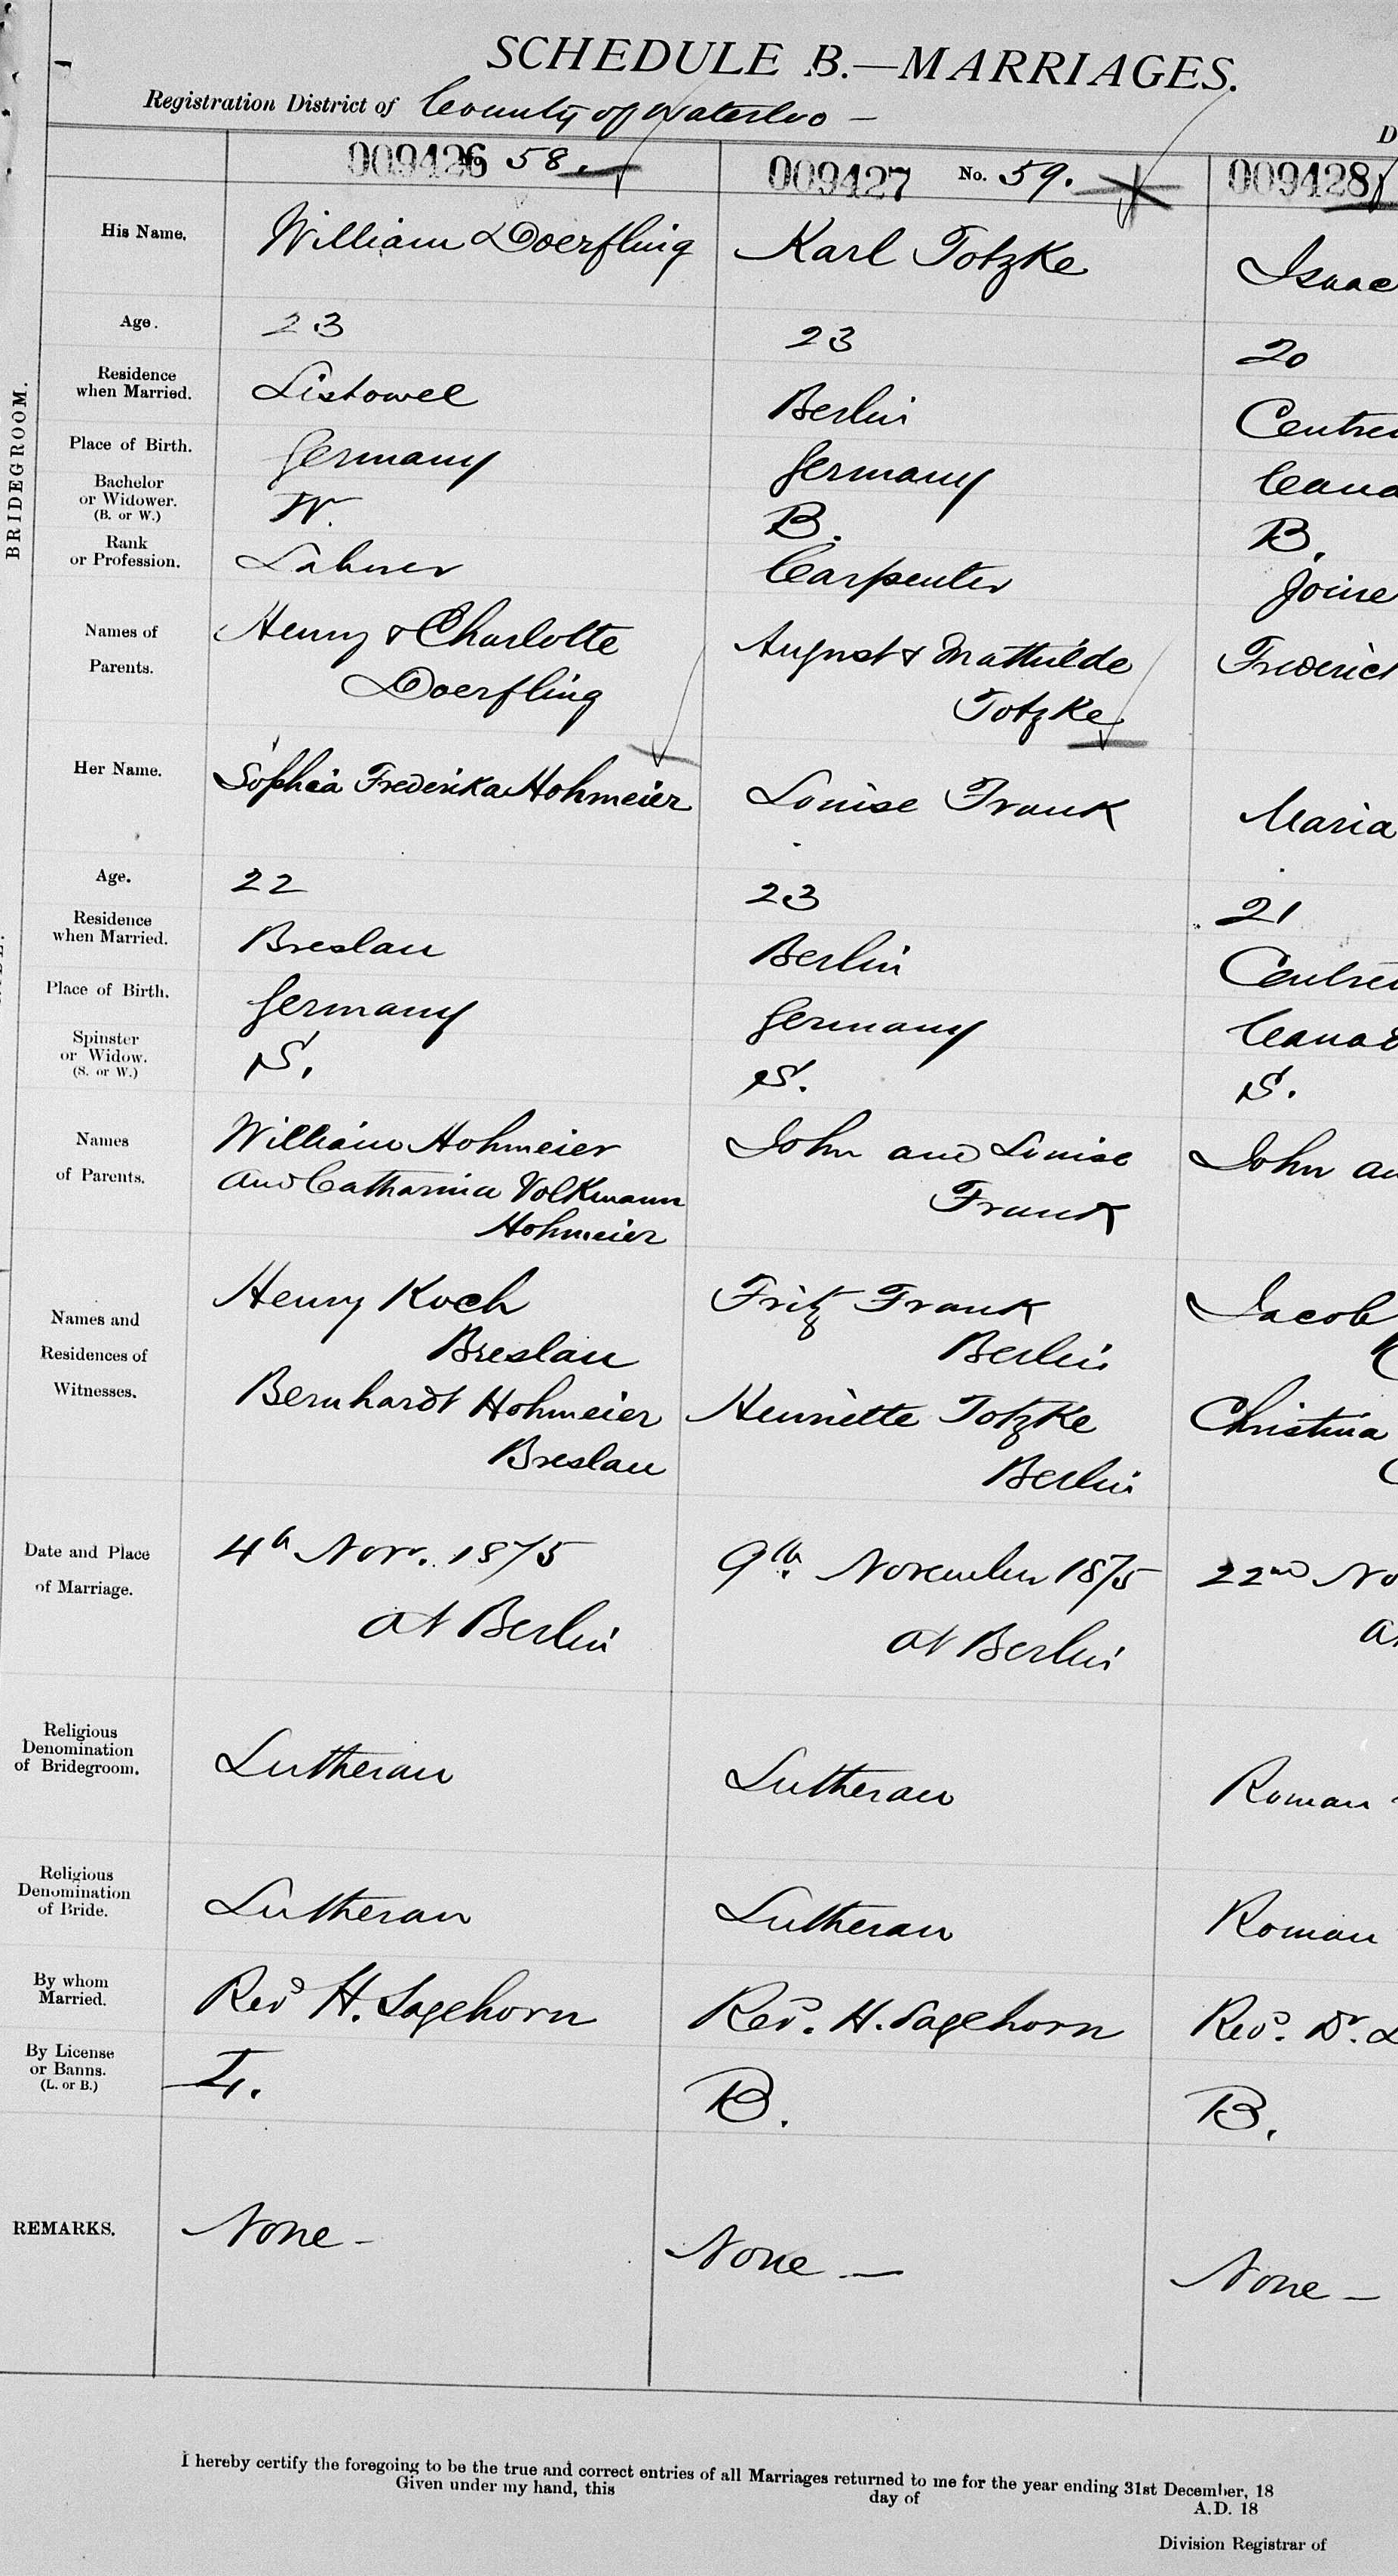 SCHEDULE B.—MARRIAGES.
Registration District of County of Waterloo —
D
009426 No. 58.
009427 No. 59.
009428
BRIDEGROOM.
His Name.
William Doerfling
Karl Totzke
Isaac
Age.
23
23
20
Residence
when Married.
Listowel
Berlin
Centre
Place of Birth.
Germany
Germany
Cana
Bachelor
or Widower.
(B. or W.)
W.
B.
B.
Rank
or Profession.
Laburer
Carpenter
Joine
Names of
Parents.
Henry & Charlotte
Doerfling
August & Mathilde
Totzke
Frederick
Her Name.
Sophia Frederika Hohmeier
Louise Frank
Maria
Age.
22
23
21
Residence
when Married.
Breslau
Berlin
Centre
Place of Birth.
Germany
Germany
Canad
Spinster
or Widow.
(S. or W.)
S.
S.
S.
Names
of Parents.
William Hohmeier
and Catharina Volkmann
Hohmeier
John and Louise
Frank
John an
Names and
Residences of
Witnesses.
Henry Koch
Breslau
Bernhardt Hohmeier
Breslau
Fritz Frank
Berlin
Henriette Totzke
Berlin
Jacob
Christina
C
Date and Place
of Marriage.
4th Nov. 1875
at Berlin
9th November 1875
at Berlin
22nd No
a
Religious
Denomination
of Bridegroom.
Lutheran
Lutheran
Roman
Religious
Denomination
of Bride.
Lutheran
Lutheran
Roman
By whom
Married.
Revd H. Sagehorn
Revd. H. Sagehorn
Revd. Dr. L
By License
or Banns.
(L. or B.)
L.
B.
B.
REMARKS.
None —
None —
None —
I hereby certify the foregoing to be the true and correct entries of all Marriages returned to me for the year ending 31st December, 18
Given under my hand, this day of A.D. 18
Division Registrar of